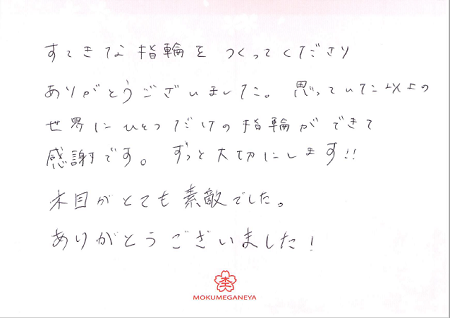 すてきな指輪をつくってくださり
ありがとうございました。思っていた以上の
世界にひとつだけの指輪ができて
感謝です。ずっと大切にします!!
木目がとても素敵でした。
ありがとうございました!
MOKUMEGANEYA